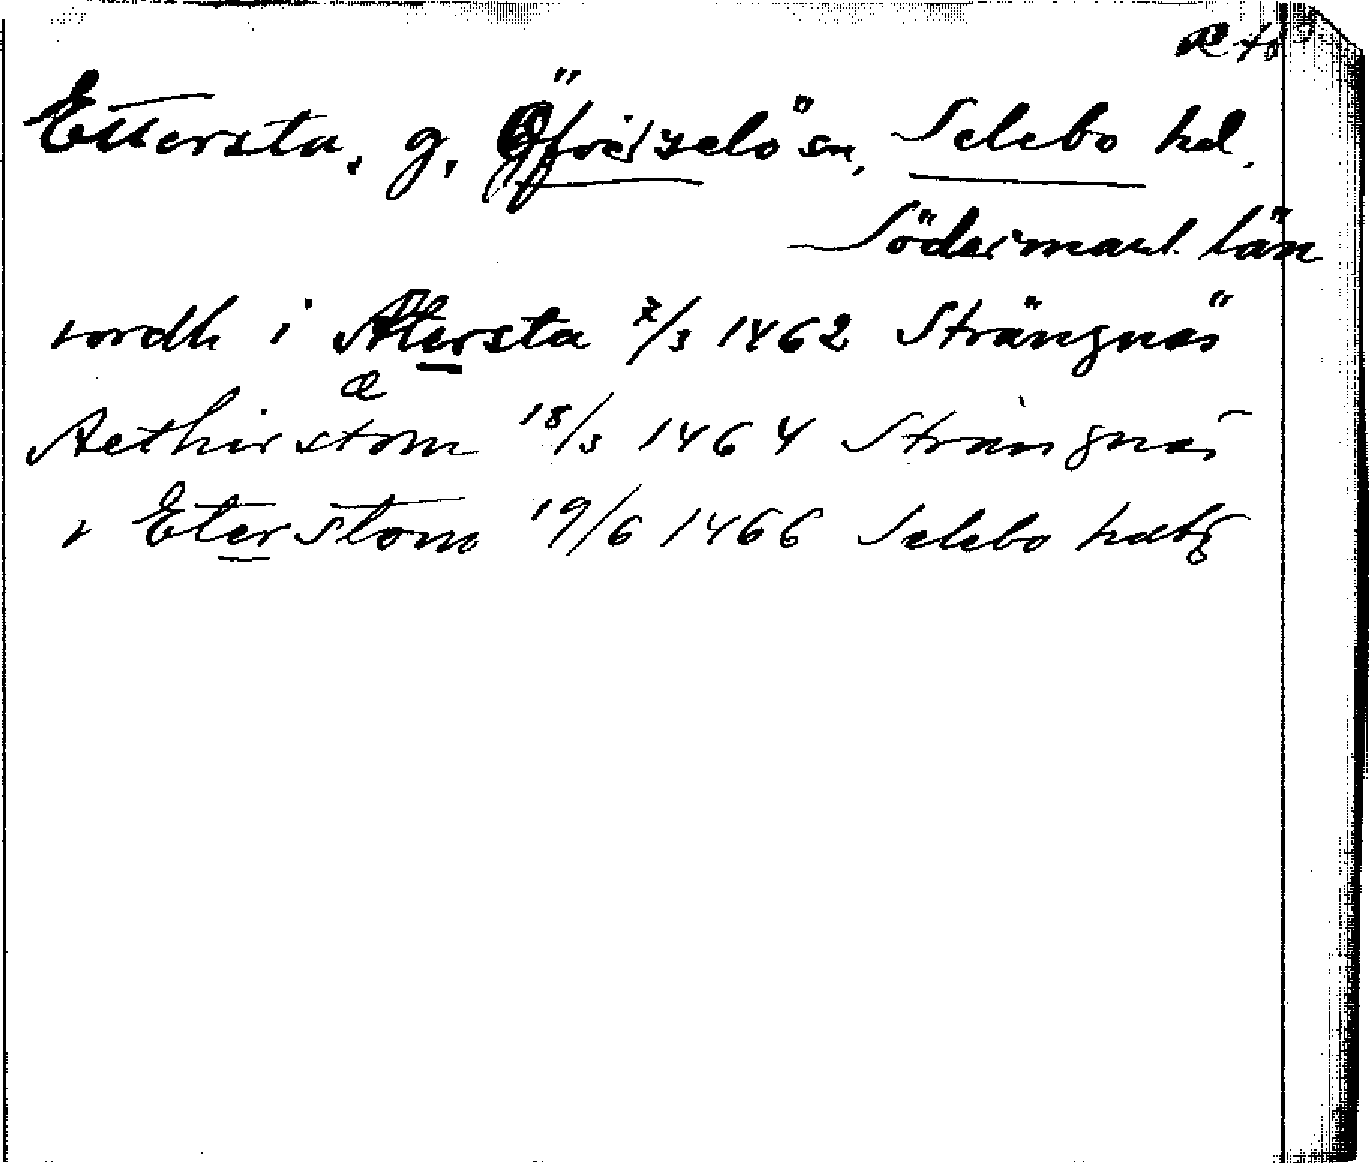 Ettersta, g. Öfverselö sn, Selebo hd.
Södermanl. län
i Ætersta 7/3 1462 Strängnäs
æ
Aethirstom 18/3 1464 Strängnäs
i Eterstom 19/6 1466 Selebo hdtg